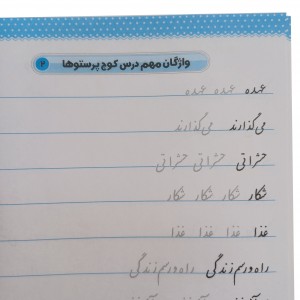 واژگان مهم درس کوچ پرستوها ۲
عده عده عده
می‌گذارند می‌گذارند
حشراتی حشراتی حشراتی
شکار شکار شکار شکار
غذا غذا غذا غذا
راه و رسم زندگی راه و رسم زندگی